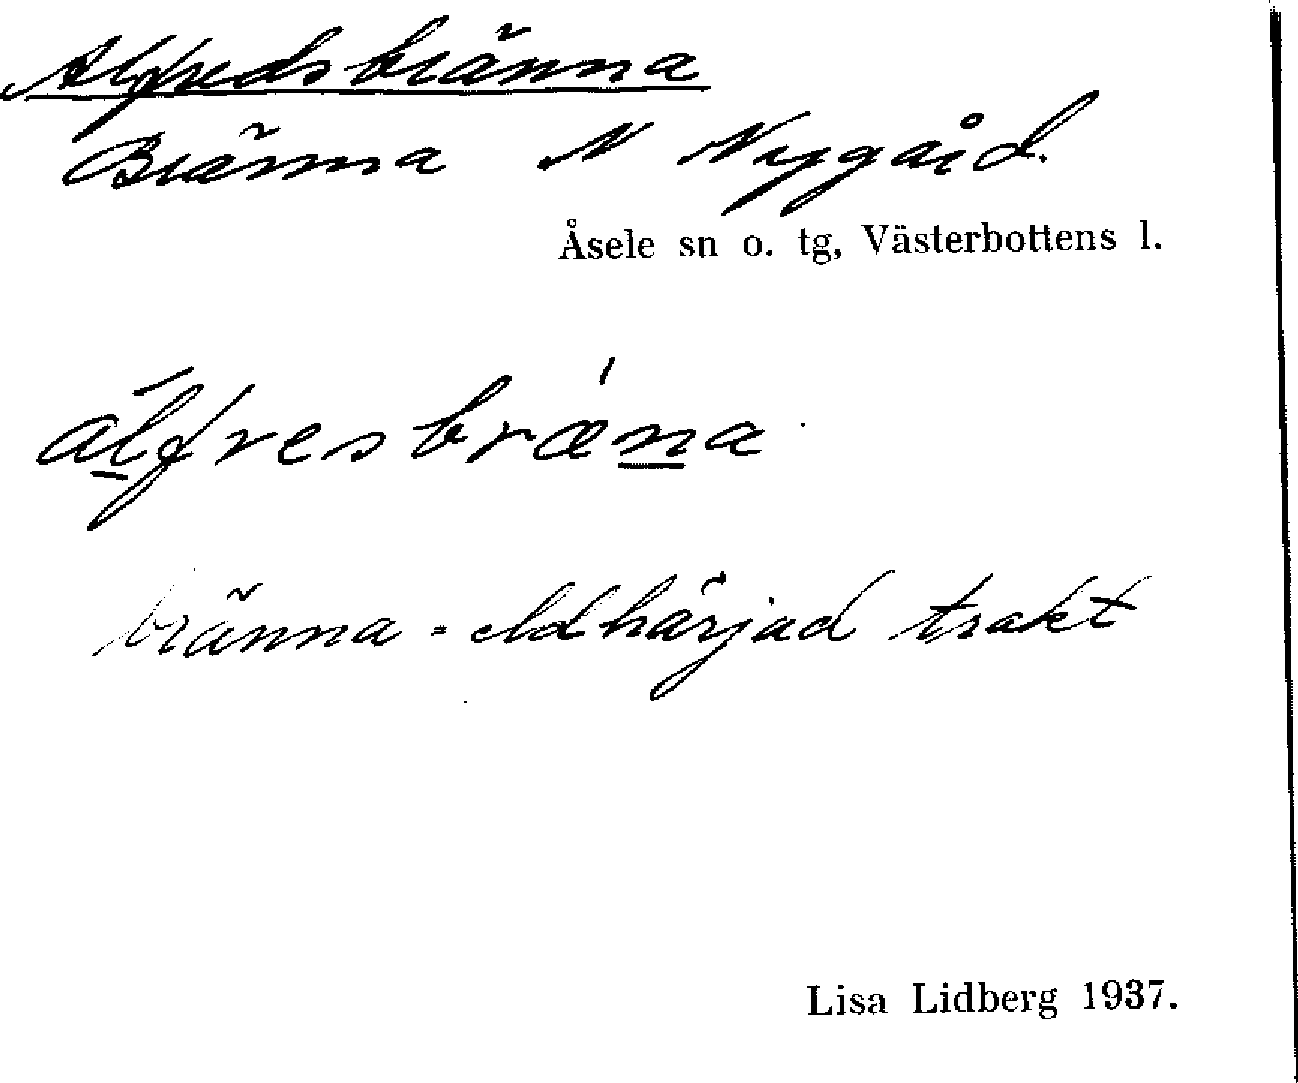 Alfredsbränna
Bränna N Nygård.
Åsele sn o. tg, Västerbottens l.
àl̲fresbrǽn̲a
bränna - eldhärjad trakt
Lisa Lidberg 1937.